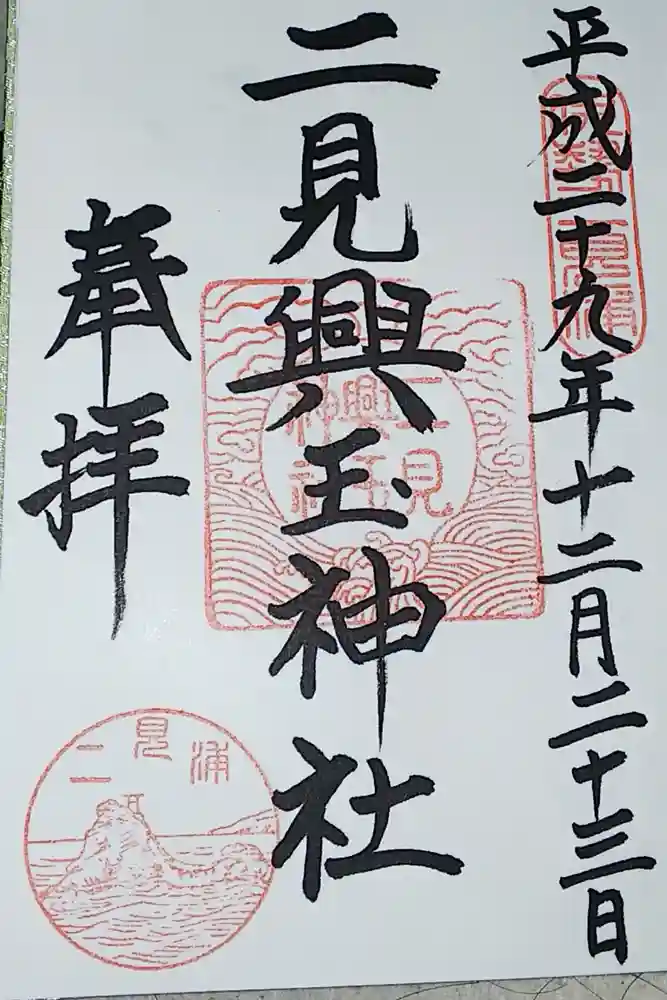 平成二十九年十二月二十三日
伊勢二見浦
二見興玉神社
二見
興玉
神社
奉拝
二見浦